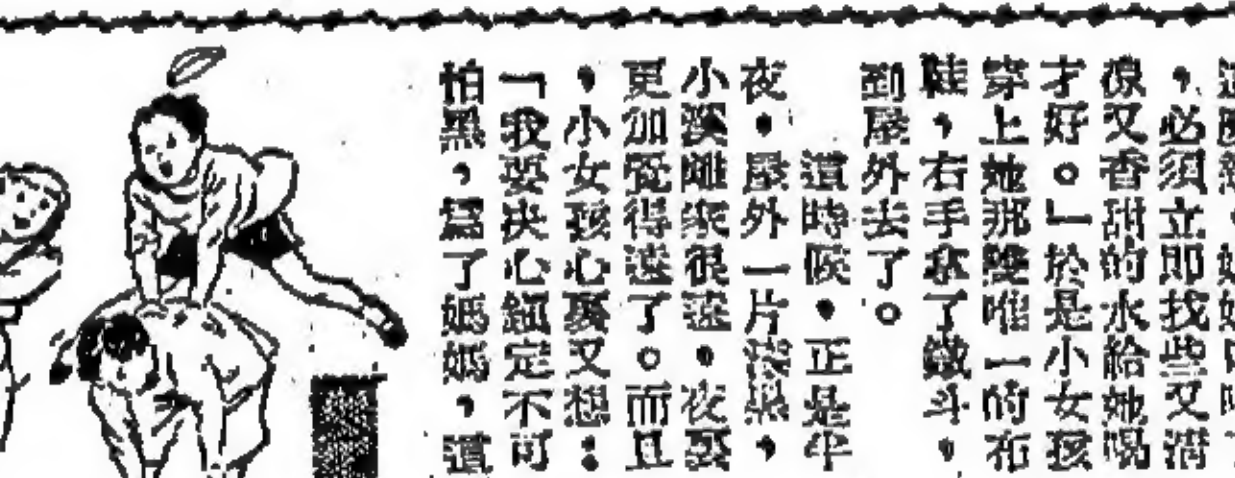 ，必須立即找些又清
涼又香甜的水給她喝
才好。」於是小女孩
穿上她那雙唯一的布
鞋，右手拿了鐵斗，
到屋外去了。
這時候，正是半
夜，屋外一片漆黑，
小溪離家很遠，夜裏
更加覺得遠了。而且
，小女孩心裏又想：
「我要決心鎮定不可
怕黑，爲了媽媽，這